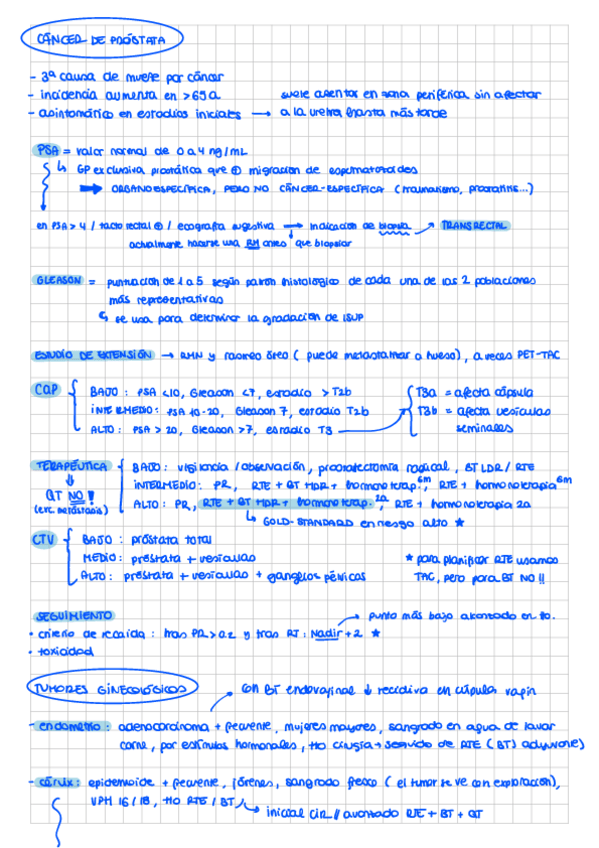 CÁNCER DE PRÓSTATA
- 3ª causa de muerte por cáncer
- incidencia aumenta en >65a
- asintomático en estadios iniciales → suele asentar en zona periférica sin afectar
a la uretra hasta más tarde
PSA = valor normal de 0 a 4 ng/mL
↳ GP exclusiva prostática que ⊕ migración de espermatozoides
➡ ORGANOESPECÍFICA, PERO NO CÁNCER-ESPECÍFICA (traumatismo, prostatitis...)
en PSA > 4 / tacto rectal ⊕ / ecografía sugestiva → indicación de biopsia → TRANSRECTAL
actualmente hacerse una RM antes que biopsiar
GLEASON = puntuación de 1 a 5 según patrón histológico de cada una de las 2 poblaciones
más representativas
↳ se usa para determinar la gradación de ISUP
ESTUDIO DE EXTENSIÓN → RMN y rastreo óseo (puede metastatizar a hueso), a veces PET-TAC
CaP
BAJO: PSA <10, Gleason <7, estadio > T2b
INTERMEDIO: PSA 10-20, Gleason 7, estadio T2b
ALTO: PSA > 20, Gleason >7, estadio T3
T3a = afecta cápsula
T3b = afecta vesículas
seminales
TERAPÉUTICA
QT NO!
(exc. metástasis)
BAJO: vigilancia/observación, prostatectomía radical, BT LDR / RTE
INTERMEDIO: PR, RTE + BT HDR + hormonoterap. 6m, RTE + hormonoterapia 6m
ALTO: PR, RTE + BT HDR + hormonoterap. 2a, RTE + hormonoterapia 2a
↳ GOLD-STANDARD en riesgo alto ★
CTV
BAJO: próstata total
MEDIO: próstata + vesículas
ALTO: próstata + vesículas + ganglios pélvicos
★ para planificar RTE usamos
TAC, pero para BT NO!!
SEGUIMIENTO
• criterio de recaída: tras PR > 0.2 y tras RT: Nadir + 2 ★ → punto más bajo alcanzado en tto.
• toxicidad
TUMORES GINECOLÓGICOS
con BT endovaginal ↓ recidiva en cúpula vagin
- endometrio: adenocarcinoma + frecuente, mujeres mayores, sangrado en agua de lavar
carne, por estímulos hormonales, tto cirugía → seguido de RTE (BT) adyuvante)
- cérvix: epidermoide + frecuente, jóvenes, sangrado fresco (el tumor se ve con exploración),
VPH 16/18, tto RTE / BT
↳ inicial cir // avanzado RTE + BT + QT